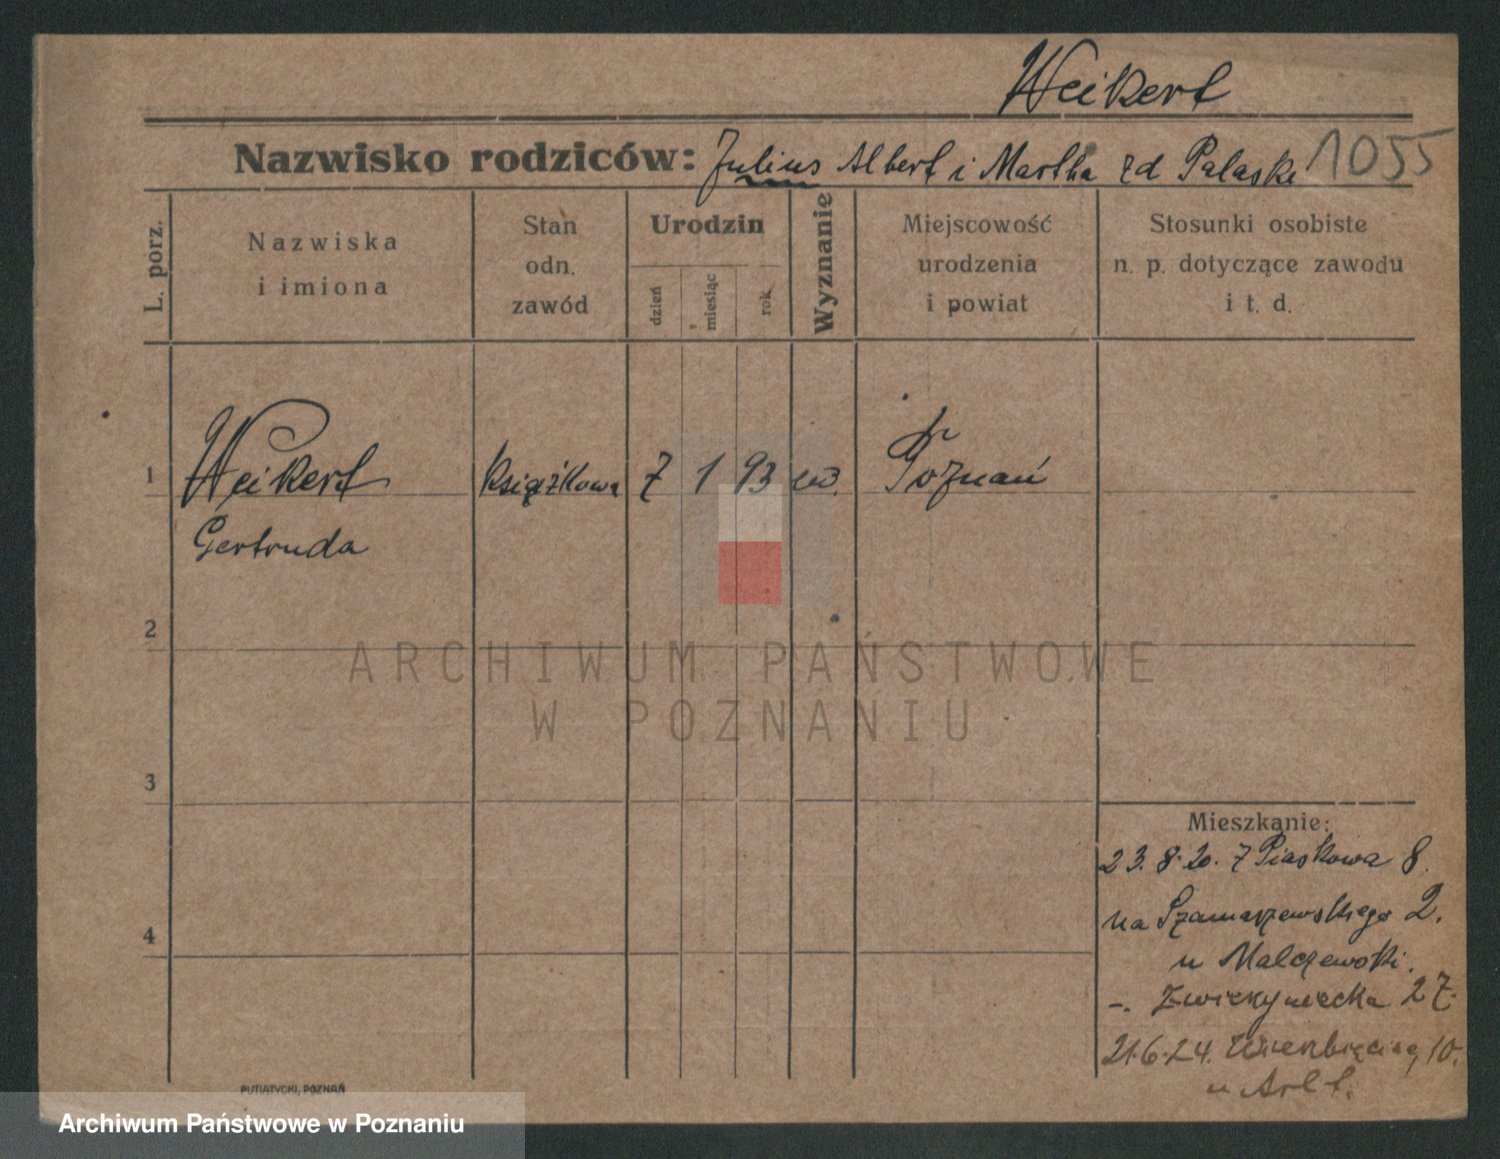 Weikert
Nazwisko rodziców: Julius Albert i Martha zd Palaske 1055
L. porz.
Nazwiska
i imiona
Stan
odn.
zawód
Urodzin
dzień
miesiąc
rok
Wyznanie
Miejscowość
urodzenia
i powiat
Stosunki osobiste
n. p. dotyczące zawodu
i t. d.
1 Weikert książkowa 7 1 93 Poznań
Gertruda
2
3
4
ARCHIWUM PAŃSTWOWE
W POZNANIU
Mieszkanie:
23.8.20. Piaskowa 8.
na Szamarzewskiego 2.
u Malczewski.
-. Zwierzyniecka 27.
21.6.24. 10.
PUTIATYCKI, POZNAŃ
Archiwum Państwowe w Poznaniu